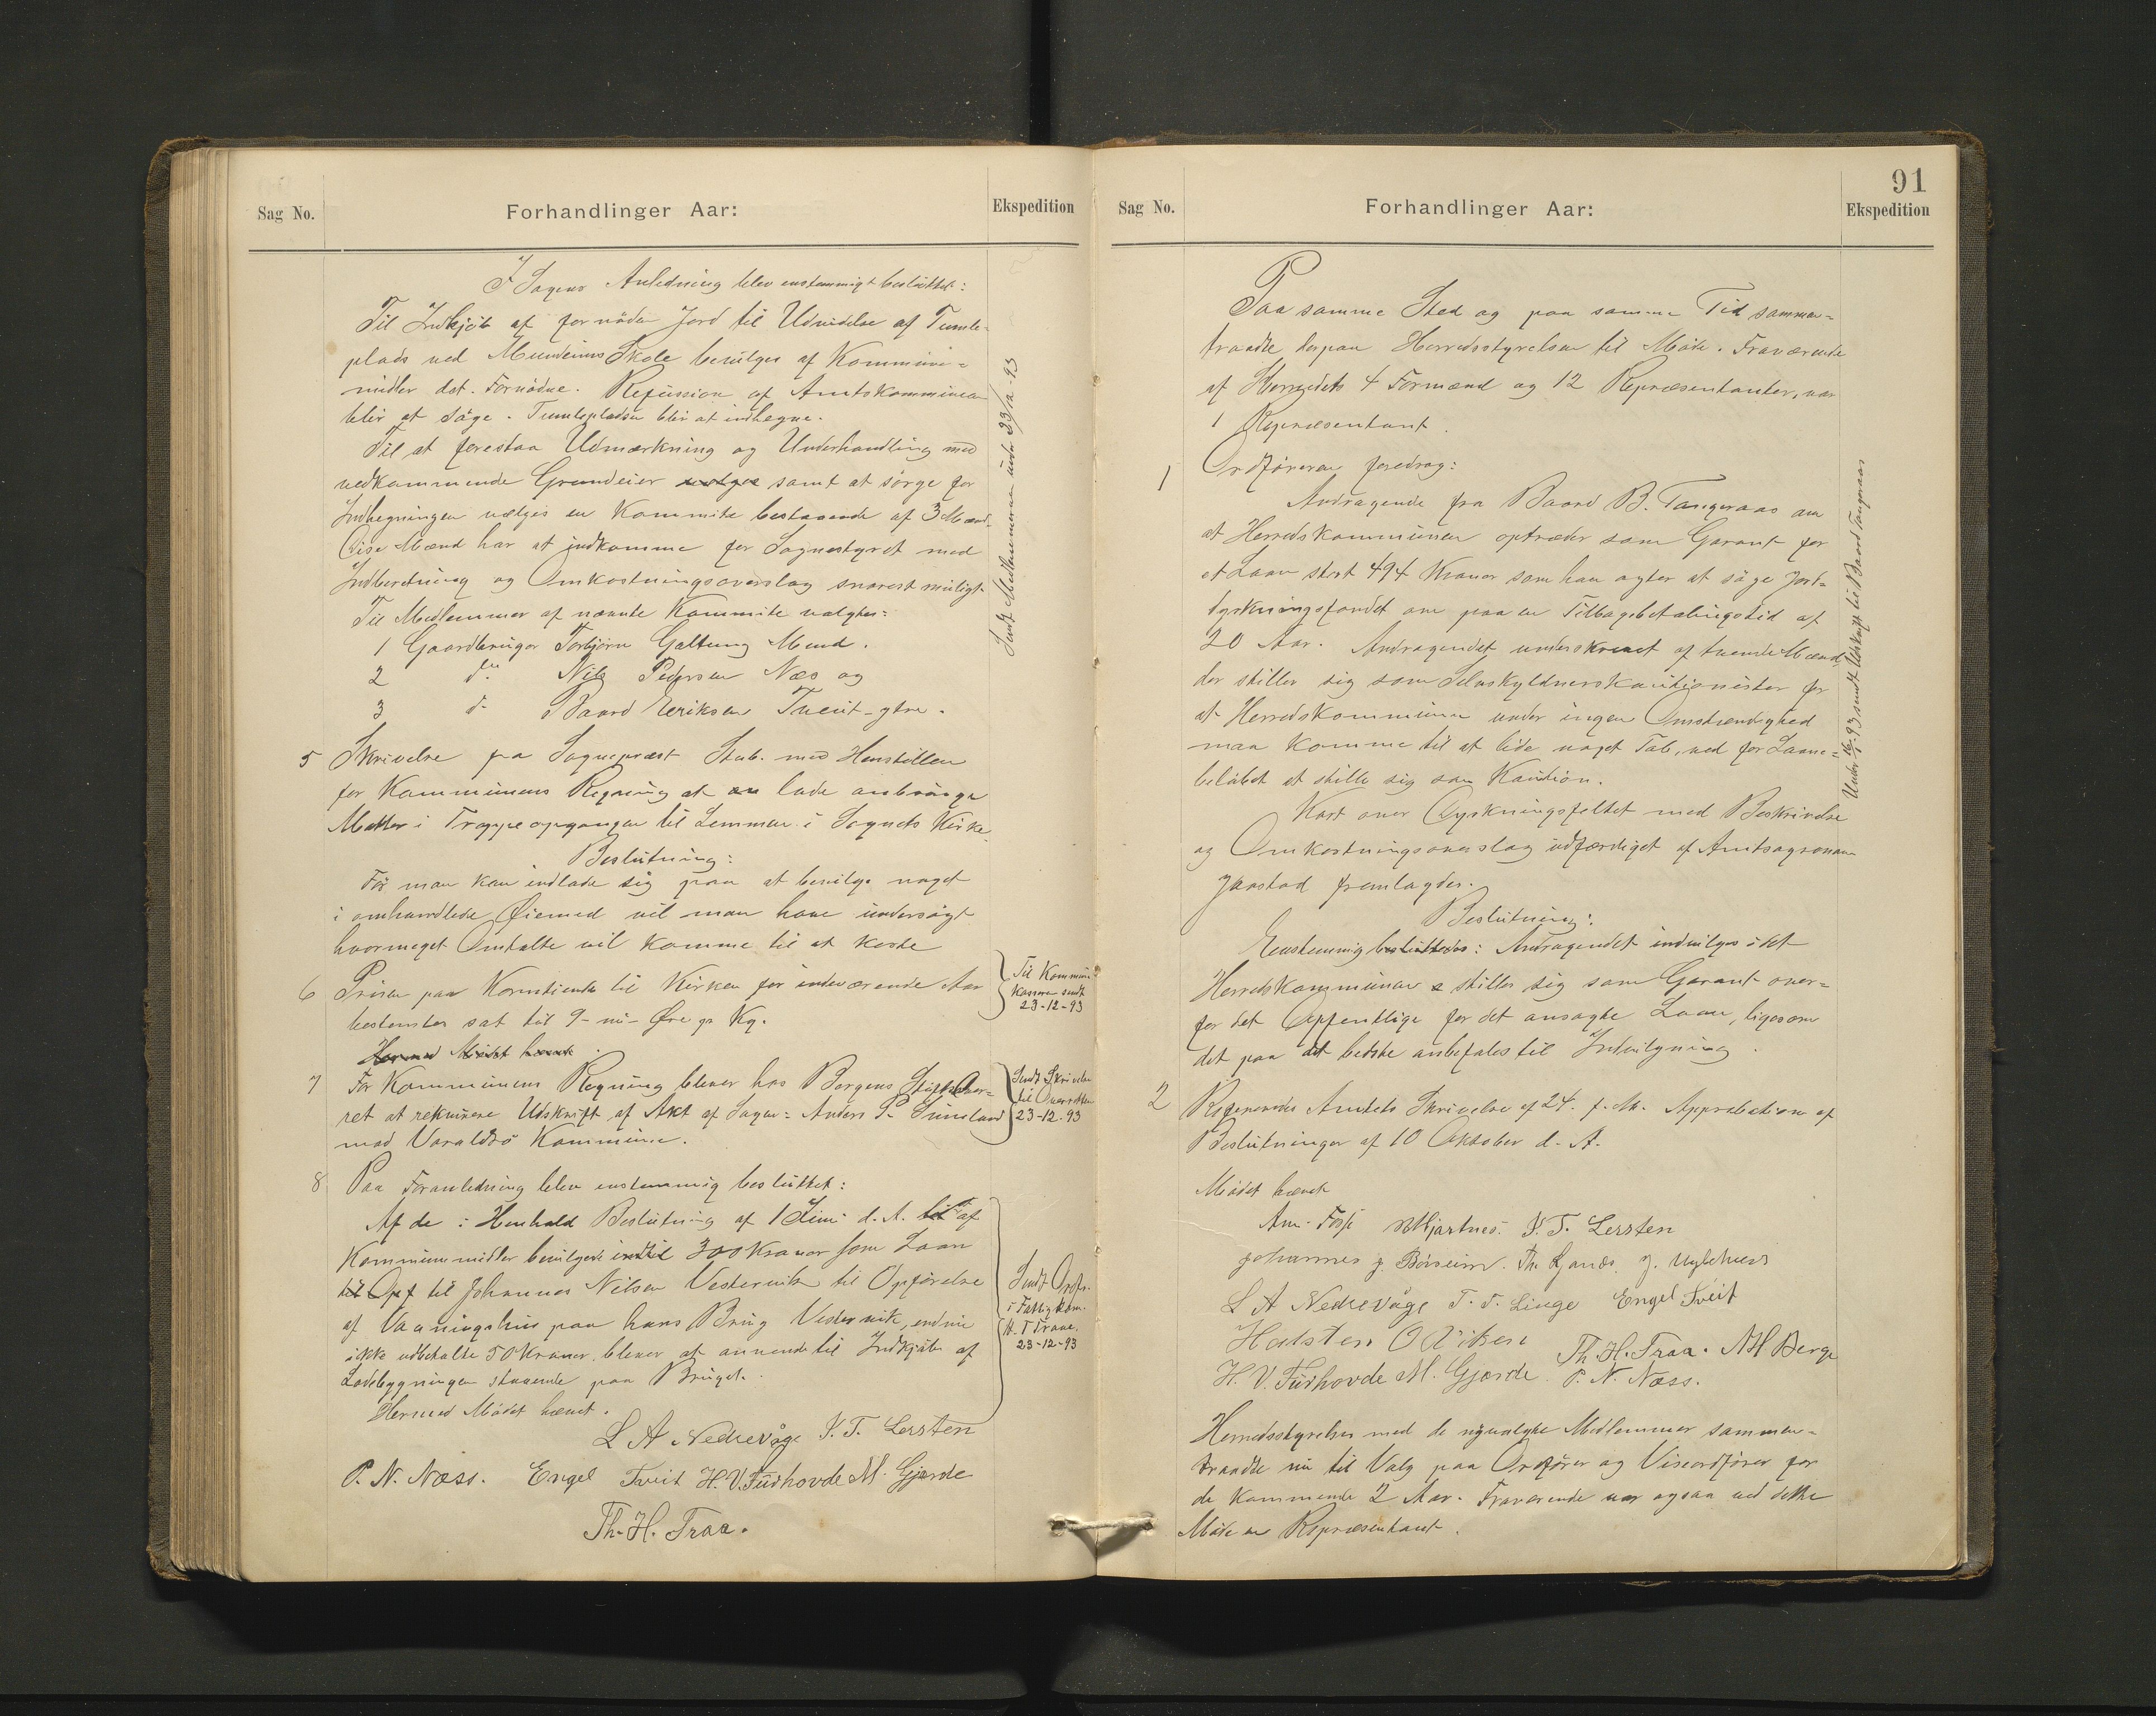 Sag No.
Forhandlinger Aar:
Ekspedition
I Sagens Anledning blev enstemmigt besluttet:
Til Indkjöb af fornöden Jord til Udvidelse af Tumle-
plads ved Mundeims Skole bevilges af Kommune-
midler det Fornödne. Refusion af Amtskommunen
blir at söge. Tumlepladsen blir at indhegne.
Til at forestaa Udmærkning og Underhandling med
vedkommende Grundeier samt at sörge for
Indhegningen vælges en Kommite bestaaende af 3 Mænd.
Disse Mænd har at indkomme for Sognestyret med
Indberetning og Omkostningsoverslag snarest muligt
Til Medlemmer af nævnte Kommite valgtes:
1 Gaardbruger Torbjörn Galtung Mund.
2 do Nils Pedersen Næs og
3 d- Baard Eeriksen Tveit-ytre.
Sendt Medlemmerne under 23/12-93
5 Skrivelse fra Sogneprest Stub. med Henstillen
for Kommunens Regning at lade anbringe
Matter i Trappeopgangen til Lemmen i Sognets Kirke.
Beslutning:
För man kan indlade sig paa at bevilge noget
i omhandlede Öiemed vil man have undersögt
hvormeget Omtalte vil komme til at koste
6 Prisen paa Korntiende til Kirken for indeværende Aar
bestemtes sat til 9-ni-Öre pr Kg.
Hermed Mödet hævet.
Til Kommune
kassen sendt
23-12-93
7 For Kommunens Regning bliver hos Bergens Stiftsover-
ret at rekvirere Udskrift af Akt af Sagen: Anders P. Sunsland
mod Varaldsö Kommune.
Sendt Skrivelse
til Overretten
23-12-93
8 Paa Foranledning blev enstemmig besluttet:
Af de i Henhold Beslutning af 1 Juni d.A. til af
Kommunemidler bevilgede indtil 300 Kroner som Laan
til Opf til Johannes Nilsen Vestervik til Opförelse
af Vaaningshus paa hans Brug Vestervik, endnu
ikke udbetalte 50 Kroner, bliver at anvende til Indkjöb af
Ladebygningen staaende paa Bruget.
Hermed Mödet hævet.
Sendt Ordfr.
i Fattigkom.
H. T Traae.
23-12-93
L A Nedrevåge J. T. Lersten
P. N. Næss. Engel Tveit H. V. Furhovde M. Gjerde
Th. H. Traa.
91
Sag No.
Forhandlinger Aar:
Ekspedition
Paa samme Sted og paa samme Tid sammen-
traadte derpaa Herredsstyrelsen til Möde. Fraværende
af Herredets 4 Formænd og 12 Repræsentanter, var
1 Repræsentant.
1 Ordföreren foredrog:
Andragende fra Baard B. Tangeraas om
at Herredskommunen optræder som Garant for
et Laan stort 494 Kroner som han agter at söge Jord-
dyrkningsfondet om paa en Tilbagebetalingstid af
20 Aar. Andragendet underskrevet af tvende Mænd,
der stiller sig som Selvskyldnerskautionister for
at Herredskommunen under ingen Omstændighed
maa komme til at lide noget Tab, ved for Laane-
belöbet at stille sig som Kaution.
Kart over Dyrkningsfeltet med Beskrivelse
og Omkostningsoverslag udfærdiget af Amtsagronom
Jaastad fremlagdes.
Sendt Udskrift til Baard Tangeraas
Beslutning:
Enstemmig besluttedes: Andragendet indvilges i at
Herredskommunen stiller sig som Garant over-
for det Offentlige for det ansögte Laan, ligesom
det paa det bedste anbefales til Indvilgning.
2 Refereredes Amtets Skrivelse af 24. f. M. Approbation af
Beslutninger af 10 Oktober d. A.
Mödet hævet
Am. Fosse Mjartnes. J. T. Lersten
Johannes J. Börseim. J. Nybehuus
L A Nedrevåge T. T. Linge Engel Tveit
Halsten O Th. H. Traa. M Berge
H. V. Furhovde M. Gjerde. P. N. Næss.
Herredsstyrelsen med de nyvalgte Medlemmer sammen-
traadte nu til Valg paa Ordförer og Viseordförer for
de kommende 2 Aar. Fraværende var ogsaa ved dette
Möde en Repræsentant.